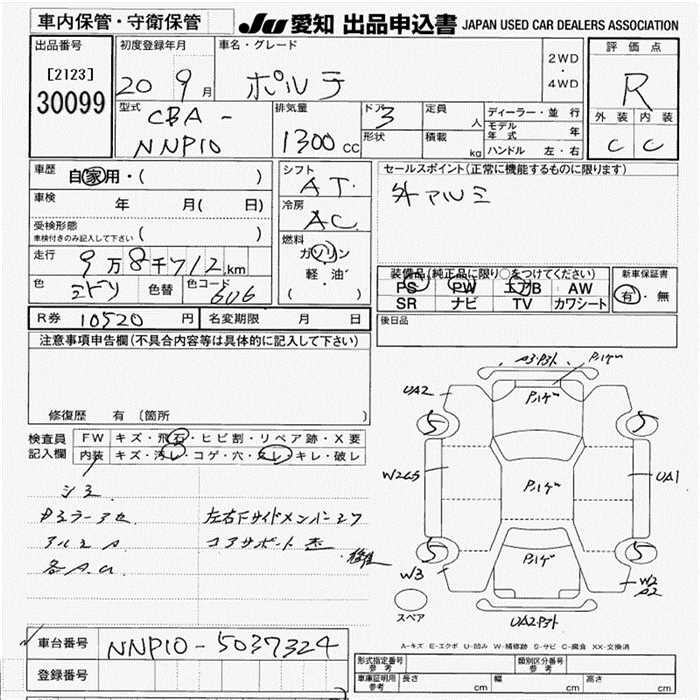 車内保管・守衛保管
JU 愛知 出品申込書 JAPAN USED CAR DEALERS ASSOCIATION
出品番号
[2123]
30099
初度登録年月
20 9月
車名・グレード
ポルテ
2WD
・
4WD
評価点
R
外装 内装
C C
型式
CBA-
NNP10
排気量
1300 cc
ドア
3
形状
定員
人
積載
kg
ディーラー・並行
モデル年式 年
ハンドル 左・右
車歴
自家用・( )
車検
年 月( 日)
受検形態
車検付きのみ記入して下さい ( )
走行
9万8千712km
色
ミドリ
色替
色コード
6U6
シフト
AT
冷房
AC
燃料
ガソリン
軽油
( )
セールスポイント(正常に機能するものに限ります)
外アルミ
装備品(純正品に限り○をつけてください)
PS PW エアB AW
SR ナビ TV カワシート
新車保証書
有・無
R券 10520 円
名変期限 月 日
後日品
注意事項申告欄(不具合内容等は具体的に記入して下さい)
修復歴 有 (箇所
検査員記入欄
FW キズ・飛石・ヒビ割・リペア跡・X要
内装 キズ・汚レ・コゲ・穴・スレ・キレ・破レ
シミ
アルミA
左右下サイドメンバーミワ
コアサポート
A3P3ト
P.いゲ
UA2
P.いゲ
5
5
W2G5
P.いゲ
UA1
5
5
P.いゲ
W3
W2
A2
UA2P3ト
スペア
A-キズ E-エクボ U-凹み W-補修跡 S-サビ C-腐食 XX-交換済
車台番号
NNP10-5037324
登録番号
形式指定番号
参考
類別区分番号
参考
車庫証明用
参考
長さ cm
幅 cm
高さ cm